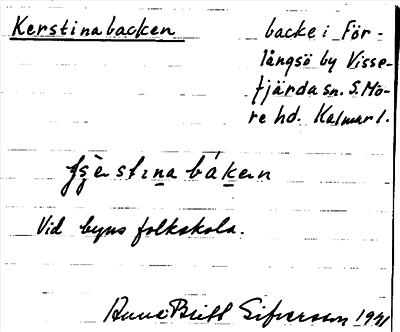 Kerstinabacken
backe i För-
långsö by Visse-
fjärda sn. S. Mö-
re hd. Kalmar l.
baken
Vid byns folkskola.
Anna Britt Sifversson 1941